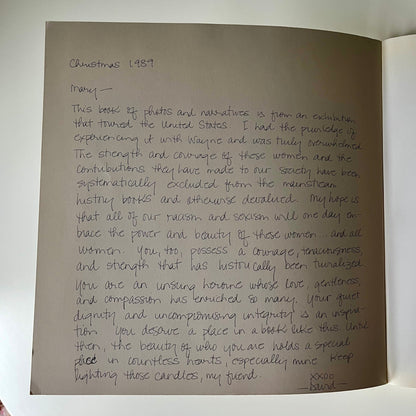 Christmas 1989
Mary—
This book of photos and narratives is from an exhibition
that toured the United States. I had the privilege of
experiencing it with Wayne and was truly overwhelmed.
The strength and courage of these women and the
contributions they have made to our society have been
systematically excluded from the mainstream
history books and otherwise devalued. My hope is
that all of our racism and sexism will one day em-
brace the power and beauty of these women... and all
women. You, too, possess a courage, tenaciousness,
and strength that has historically been trivialized.
You are an unsung heroine whose love, gentleness,
and compassion has enriched so many. Your quiet
dignity and uncompromising integrity is an inspira-
tion. You deserve a place in a book like this. Until
then, the beauty of who you are holds a special
place in countless hearts, especially mine. Keep
lighting those candles, my friend.
XXOO
—David—